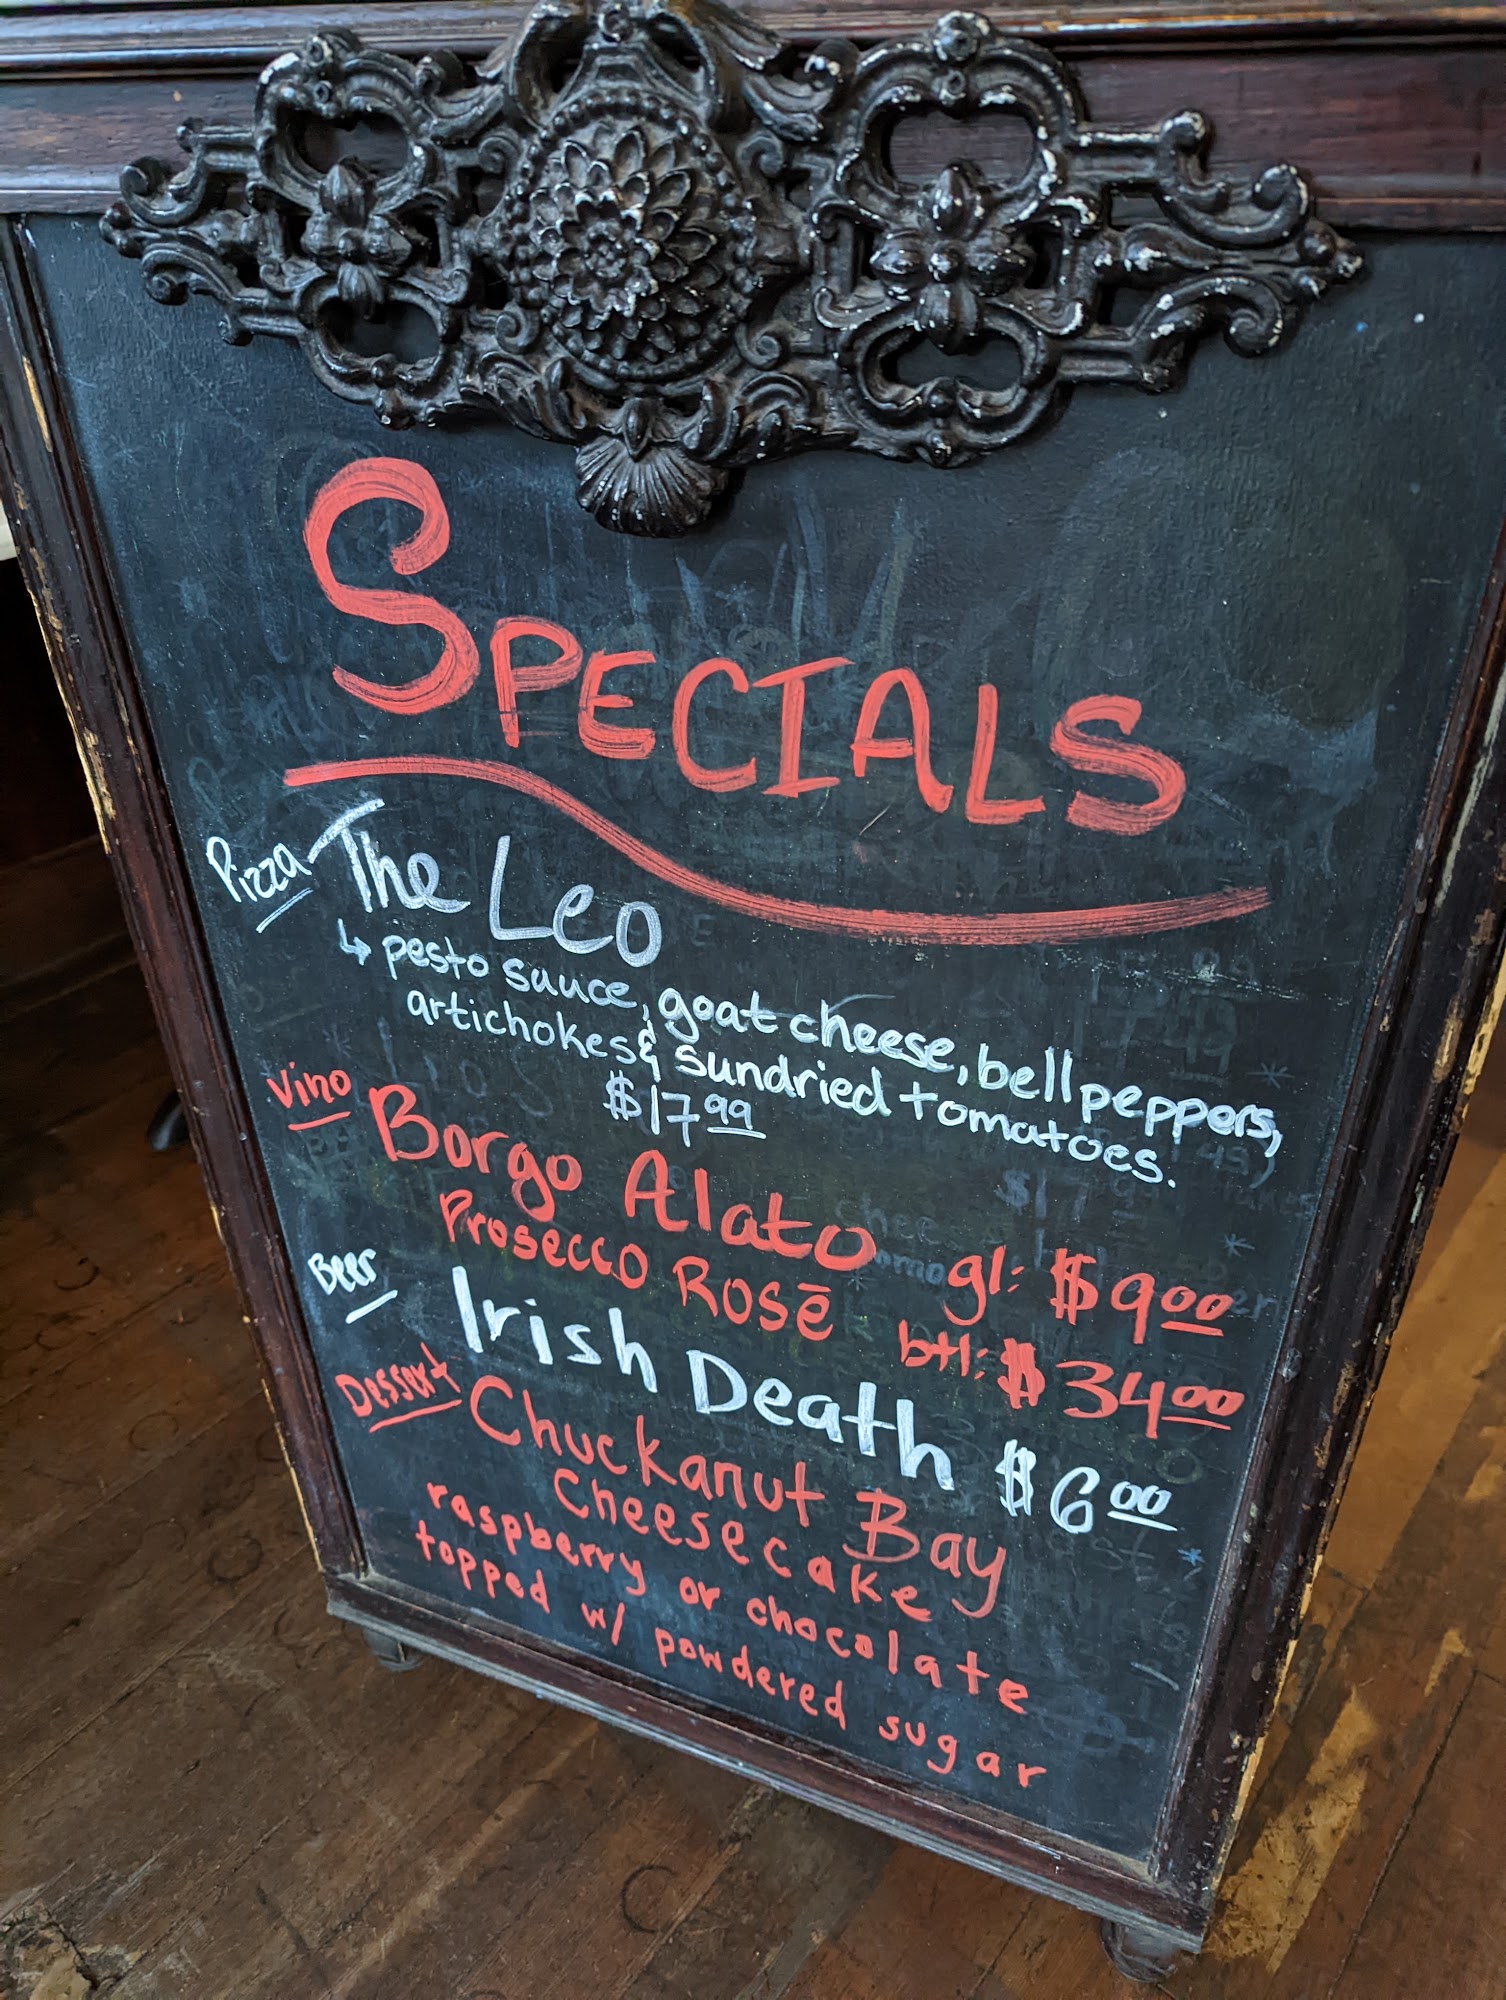 SPECIALS
Pizza The Leo
↳ pesto sauce, goat cheese, bell peppers,
artichokes & sundried tomatoes.
$17.99
Vino Borgo Alato
Prosecco Rosē gl: $9.00
btl: $34.00
Beer Irish Death $6.00
Dessert Chuckanut Bay
Cheesecake
raspberry or chocolate
topped w/ powdered sugar